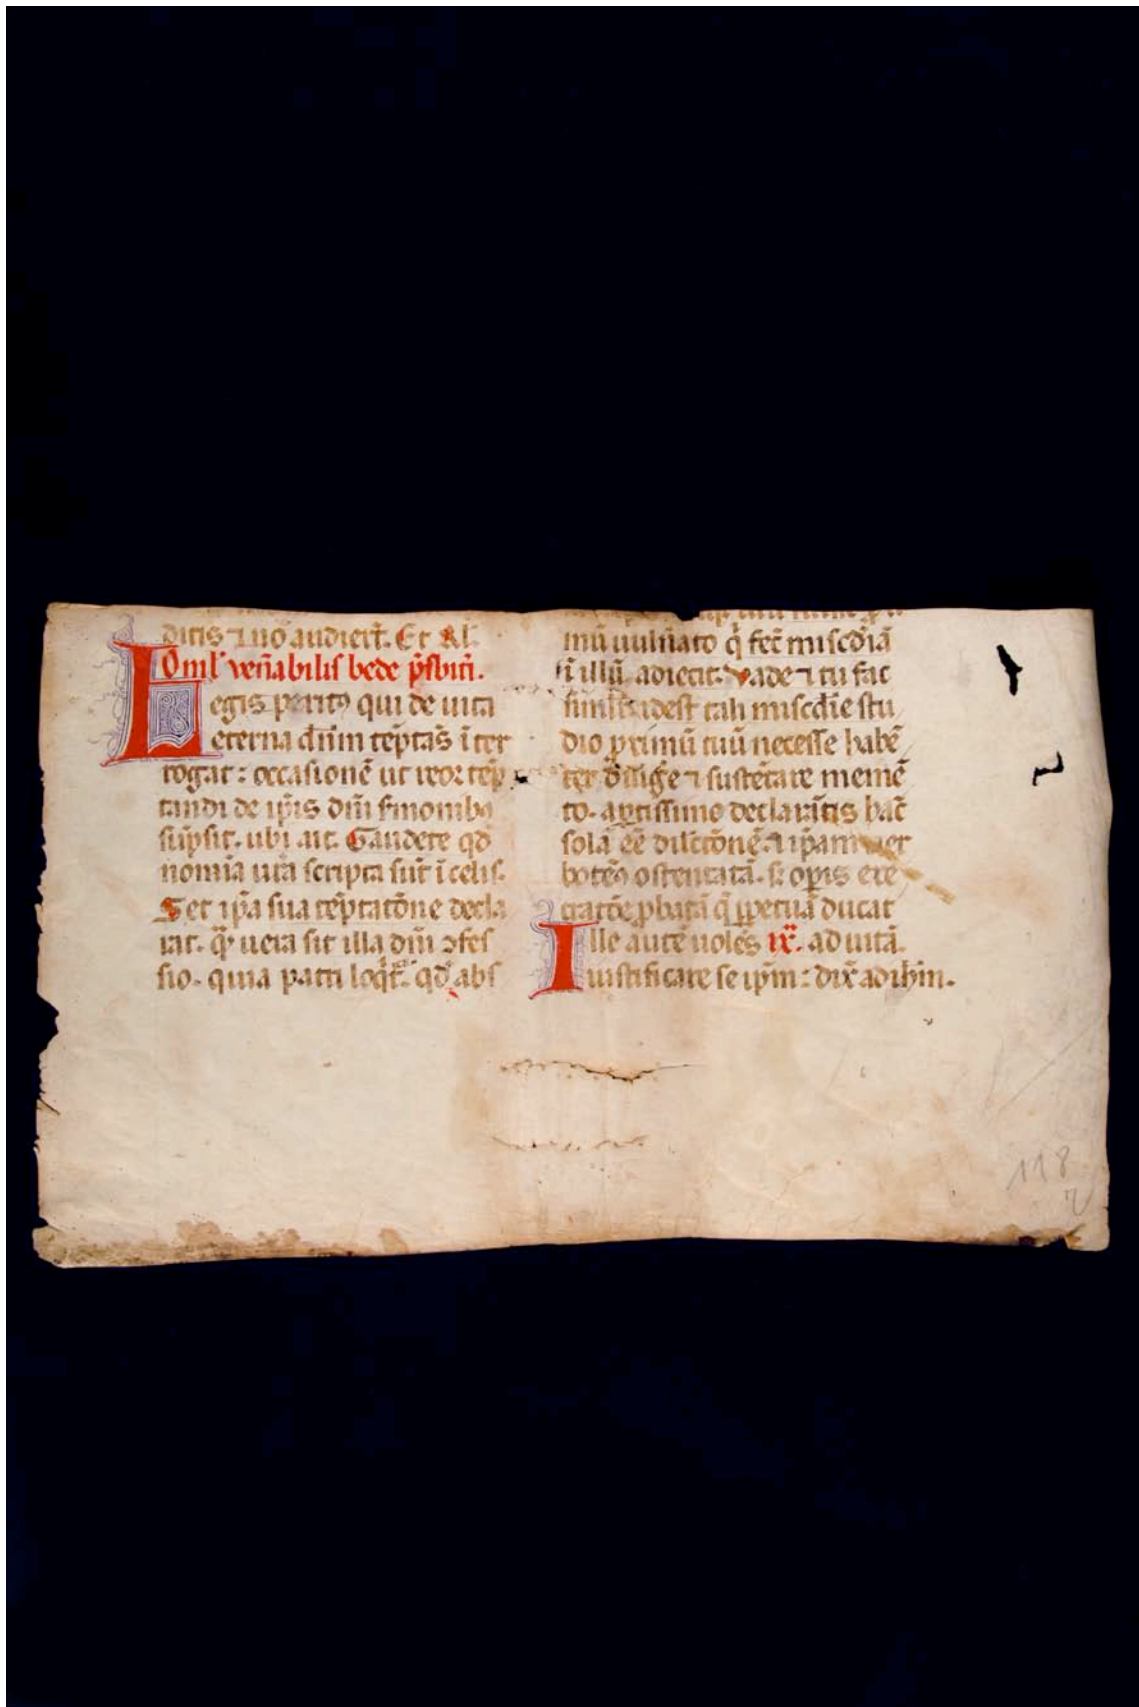 ditis ⁊ nō audier̄t. Et Rl'.
Oml' ven̄abilis bede p̄sbiti.
Legis perit᷒ qui de uita
eterna dn̄m tēptas īter
rogat: occasionē ut reor tēp
tandi de ip̄is dn̄i s̄monib᷒
sūpsit. ubi ait. Gaudete qd̄
nomīa ur̄a scripta sūt ī celis.
Set ip̄a sua tēptatōne decla
rat. q̄ uera sit illa dn̄i ɔfes
sio. quia patri loq̄t᷑. qd̄ abs
mū uuln̄ato q̄ fec̄ misc̄diā
ī illū. adiecit. Vade ⁊ tu fac
simil'r idest tali misc̄die stu
dio p̱ximū tuū necesse habē
tē diliḡe ⁊ sustētare memē
to. aꝑtissime declarās hāc
solā eē dilc̄tōnē ⁊ ip̄am uer
bo ten᷒ ostentatā. s; oꝑis exe
cutōe ꝓbatā q̄ ꝑpetuā ducat
Ille autē uolēs ıẍ. ad uitā.
iustificare se ip̄m: dix̄ ad ih̄m.
118
2